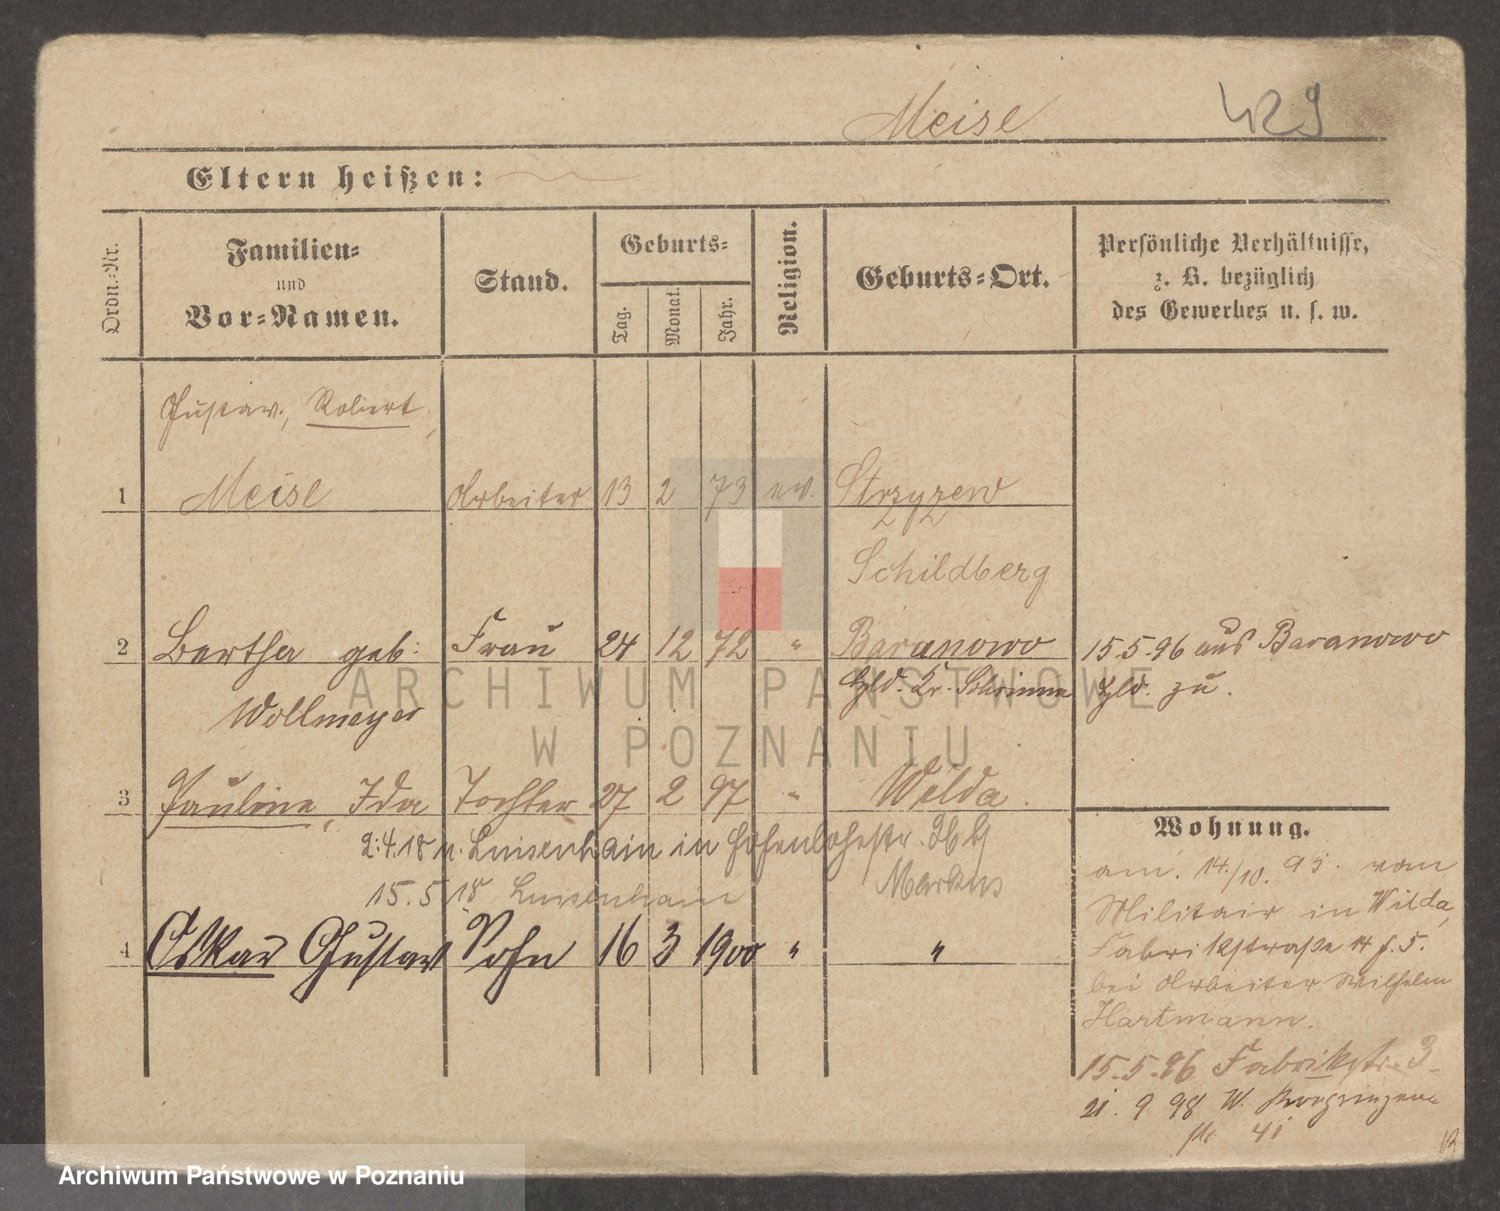 Meise 429
Eltern heißen:
Ordn.-Nr.
Familien-
und
Vor-Namen.
Stand.
Geburts-
Tag.
Monat.
Jahr.
Religion.
Geburts-Ort.
Persönliche Verhältnisse,
z. B. bezüglich
des Gewerbes u. s. w.
Gustav, Robert,
1 Meise Arbeiter 13 2 73 ev. Strzyzew
Schildberg
2 Bertha geb: Frau 24 12 72 " Baranowo 15.5.96 aus Baranowo
Wollmeyer Hld. Kr. Schrimm Hld. zu.
3 Pauline, Ida Tochter 27 2 97 " Wilda.
2.4.18 n. Luisenhain in Hohenlohestr.
15.5.18 Luisenhain Markus
4 Oskar Gustav Sohn 16 3 1900 " "
Wohnung.
am 14./10. 95. vom
Militair in Wilda,
Fabrikstraße 14
bei Arbeiter Wilhelm
Hartmann.
15.5.96 Fabrikstr. 3
21. 9 98 W. Kronprinzen-
str 41
ARCHIWUM PAŃSTWOWE
W POZNANIU
Archiwum Państwowe w Poznaniu